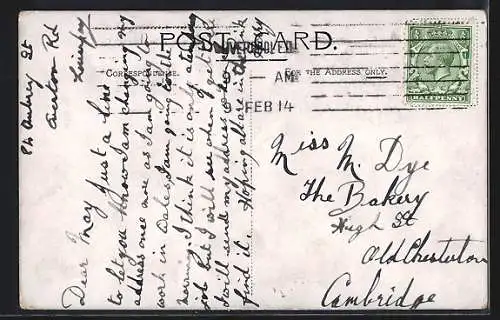 POST CARD.
CORRESPONDENCE.
FOR THE ADDRESS ONLY.
LIVERPOOL
AM
FEB 14
HALFPENNY
Aubry St
Everton Rd
Dear May Just a line
to let you know I am changing my
address once more as I am going to
work in Wales, I am going to
I think it is only a
job but I will see when I get
I will send my address so
find it. Hoping all are in the pink
Miss M. Dye
The Bakery
High St
Old Chesterton
Cambridge